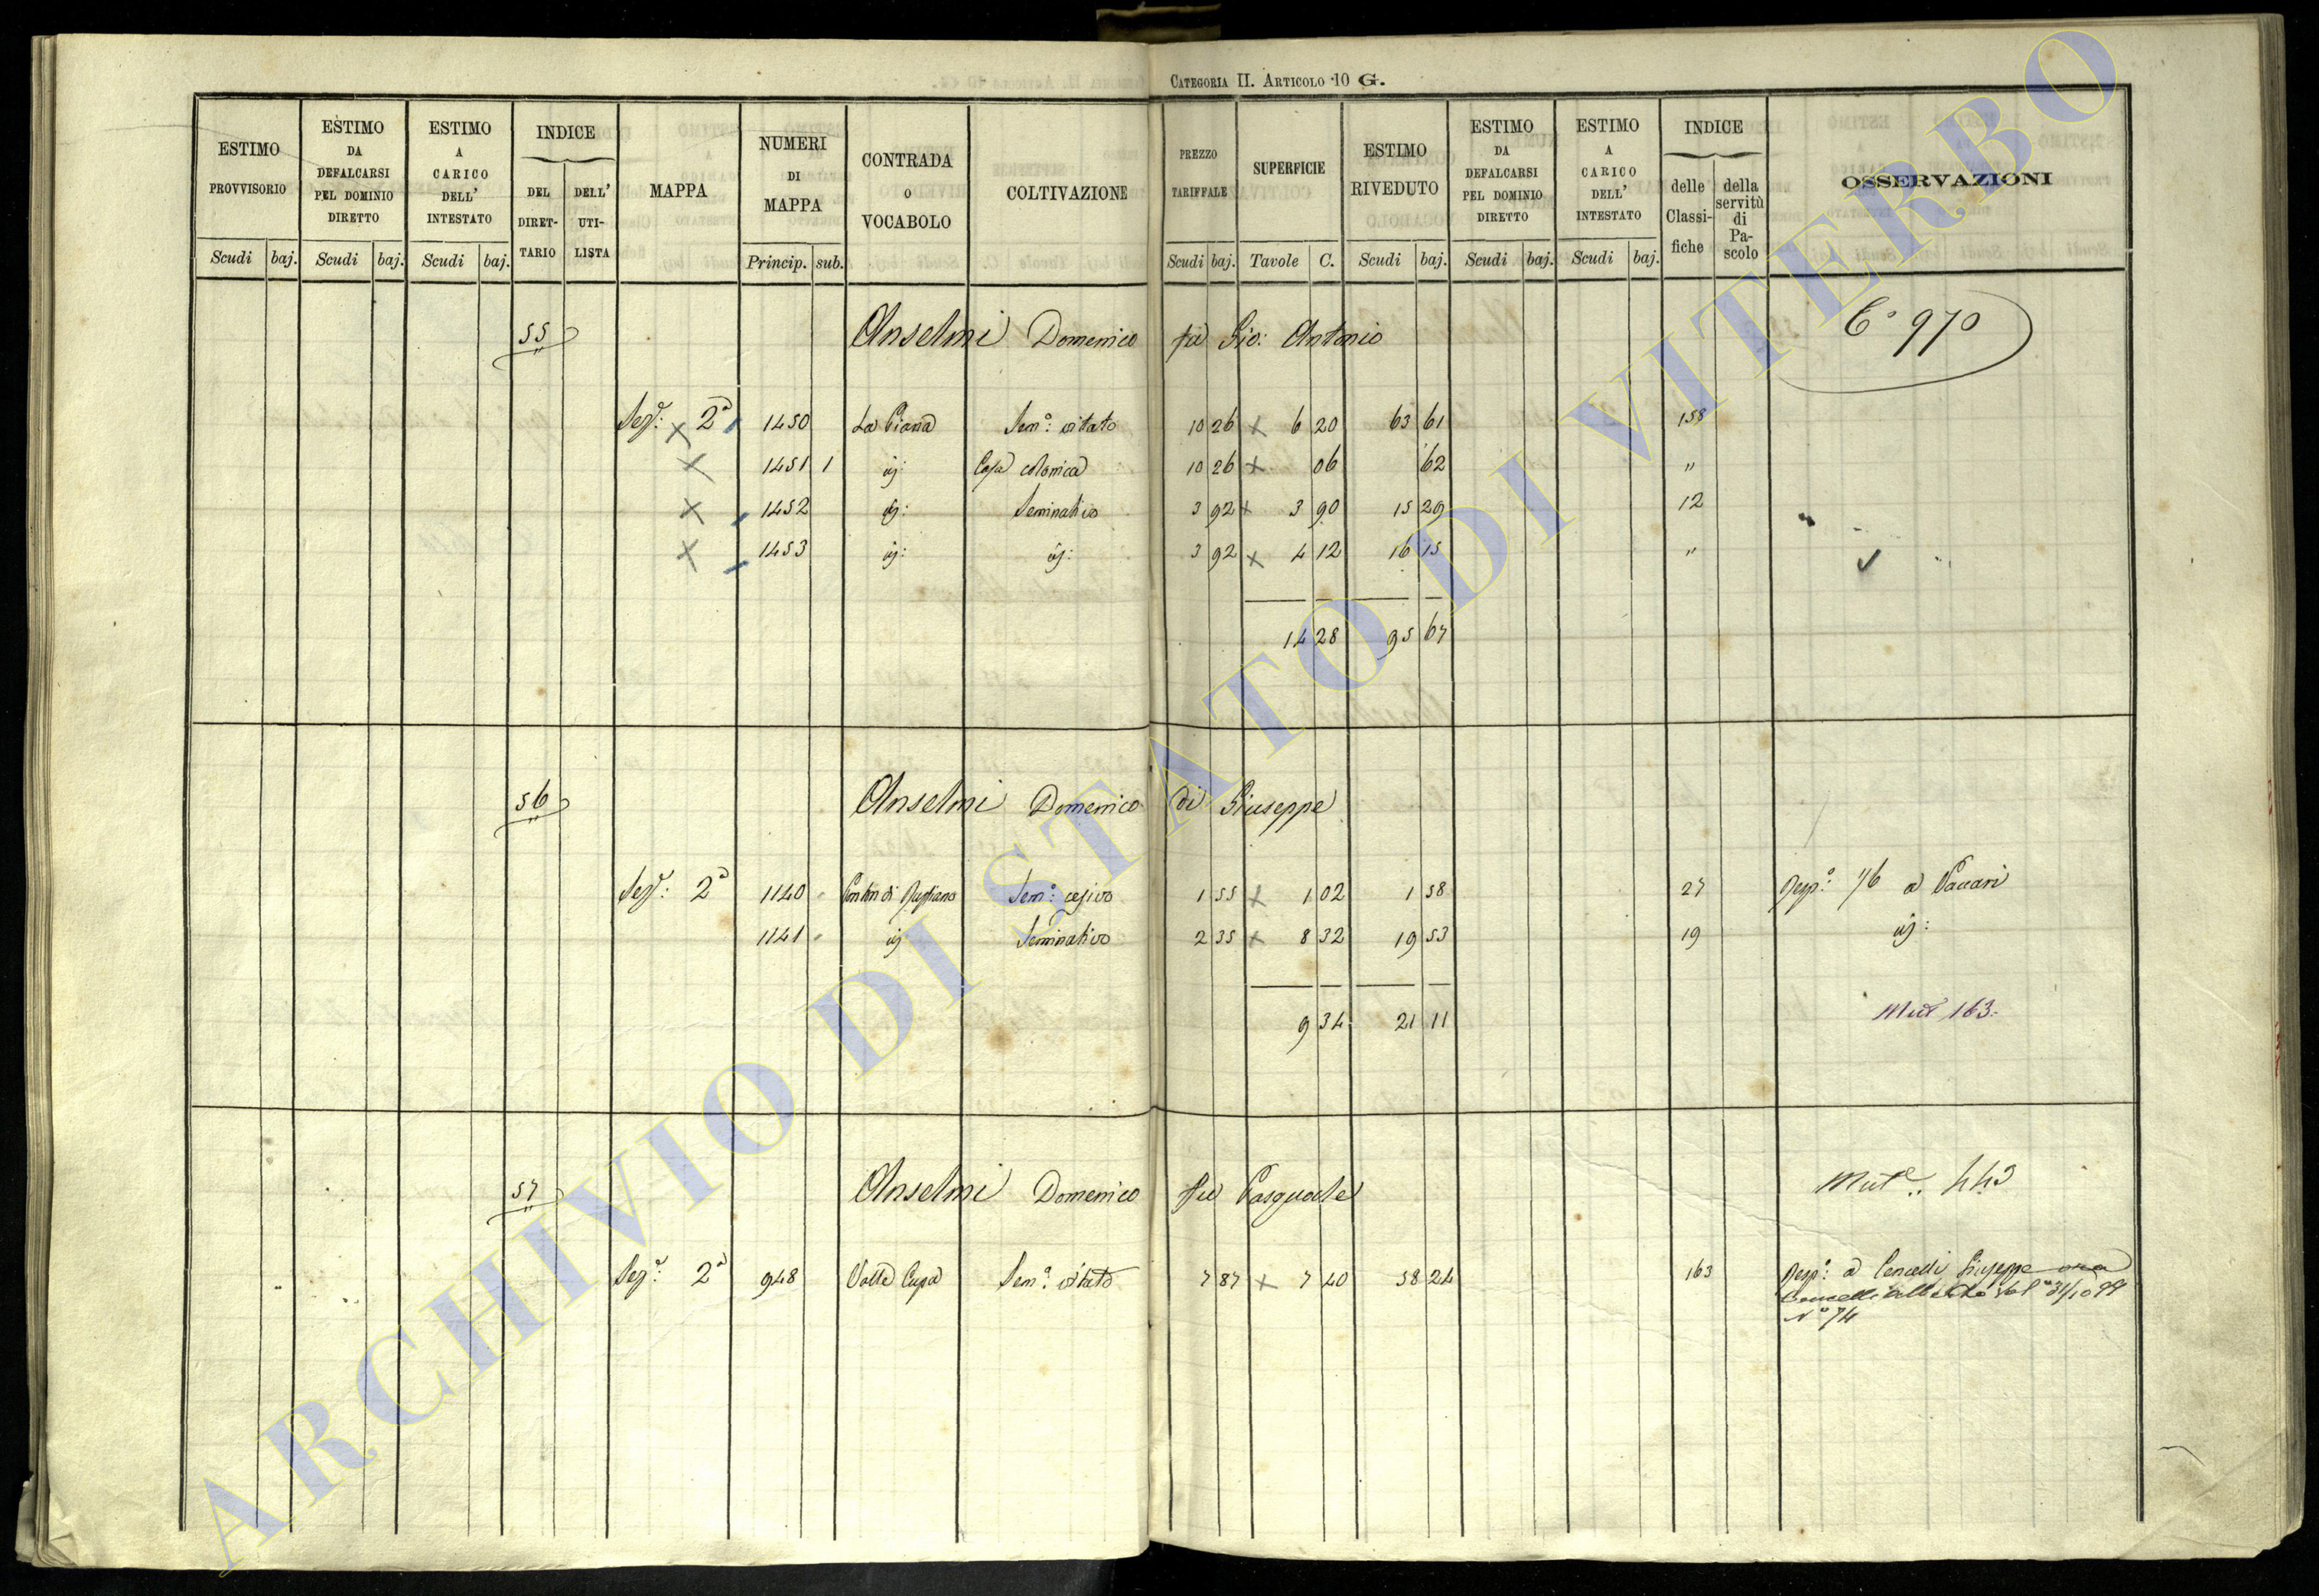 CATEGORIA II. ARTICOLO 10 G.
ESTIMO PROVVISORIO
Scudi baj.
ESTIMO DA DEFALCARSI PEL DOMINIO DIRETTO
Scudi baj.
ESTIMO A CARICO DELL' INTESTATO
Scudi baj.
INDICE
DEL DIRET-TARIO
DELL' UTI-LISTA
MAPPA
NUMERI DI MAPPA
Princip. sub.
CONTRADA O VOCABOLO
COLTIVAZIONE
PREZZO TARIFFALE
Scudi baj.
SUPERFICIE
Tavole C.
ESTIMO RIVEDUTO
Scudi baj.
ESTIMO DA DEFALCARSI PEL DOMINIO DIRETTO
Scudi baj.
ESTIMO A CARICO DELL' INTESTATO
Scudi baj.
INDICE
delle Classi-fiche
della servitù di Pa-scolo
OSSERVAZIONI
55 Anselmi Domenico fu Gio: Antonio 970
Sez.e: 2a 1450 La Piana Sem.o: vitato 10 26 6 20 63 61 158
1451 1 id: Casa colonica 10 26 06 62 "
1452 id: Seminativo 3 92 3 90 15 29 12
1453 id: id: 3 92 4 12 16 15 "
14 28 95 67
56 Anselmi Domenico di Giuseppe
Sez.e: 2a 1140 di Sem.o: cesivo 1 55 1 02 1 58 27 Resp.o: a Vaccari
1141 id Seminativo 2 35 8 32 19 53 19 id:
9 34 21 11
Mut 163.
57 Anselmi Domenico fu Pasquale Mut.e: 443
Sez.e: 2a 948 Valle Cupa Sem.o: vitato 7 87 7 40 58 24 163 Resp.o: a Cencelli Giuseppe ora
No 74
ARCHIVIO DI STATO DI VITERBO